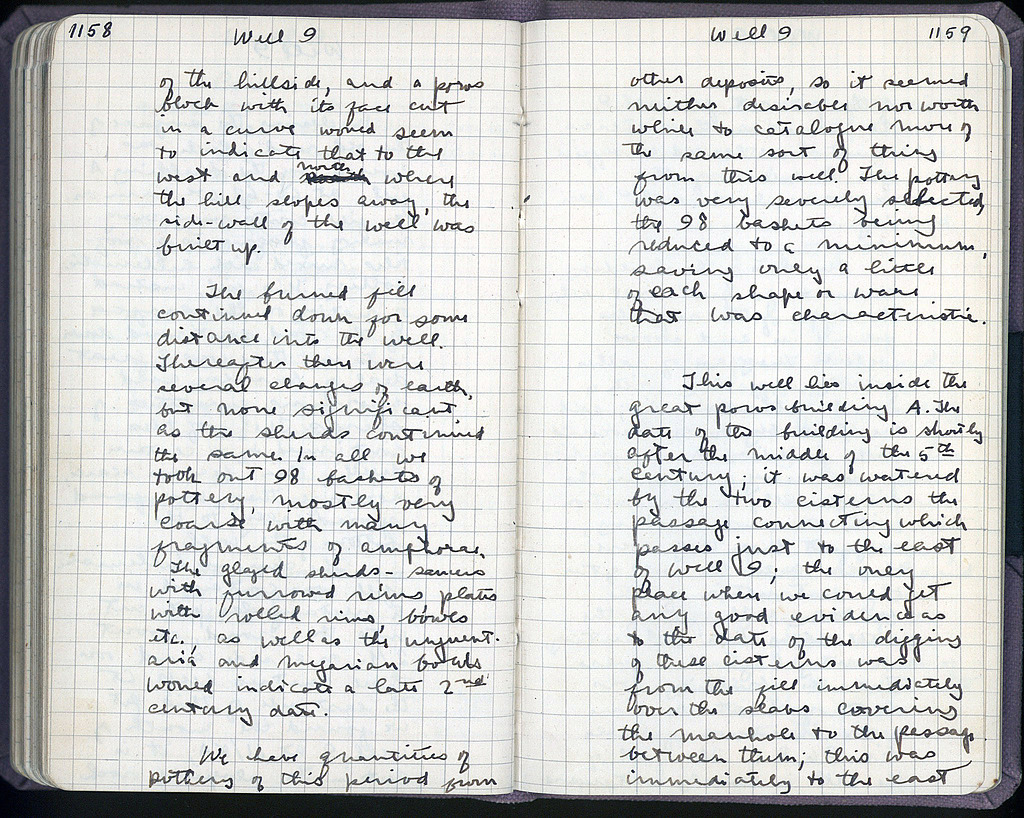 1158
Well 9
of the hillside, and a poros
block with its face cut
in a curve would seem
to indicate that to the
west and north where
the hill slopes away, the
side-wall of the well was
built up.
The burned fill
continued down for some
distance into the well.
Thereafter there were
several changes of earth,
but none significant
as the sherds continued
the same. In all we
took out 98 baskets of
pottery, mostly very
coarse with many
fragments of amphorae.
The glazed sherds - saucers
with furrowed rims, plates
with rolled rims, bowls
etc., as well as the unguent-
aria and megarian bowls
would indicate a late 2nd
century date.
We have quantities of
pottery of this period from
Well 9
1159
other deposits, so it seemed
neither desirable nor worth
while to catalogue more of
the same sort of thing
from this well. The pottery
was very severely selected,
the 98 baskets being
reduced to a minimum,
saving only a little
of each shape or ware
that was characteristic.
This well lies inside the
great poros building A. The
date of the building is shortly
after the middle of the 5th
century; it was watered
by the two cisterns the
passage connecting which
passes just to the east
of Well 9; the only
place where we could get
any good evidence as
to the date of the digging
of these cisterns was
from the fill immediately
over the slabs covering
the manhole to the passage
between them; this was
immediately to the east